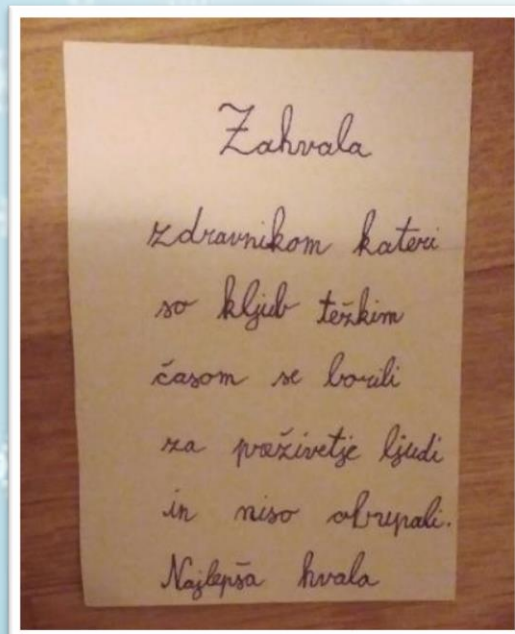 Zahvala
zdravnikom kateri
so kljub težkim
časom se borili
za preživetje ljudi
in niso obupali.
Najlepša hvala